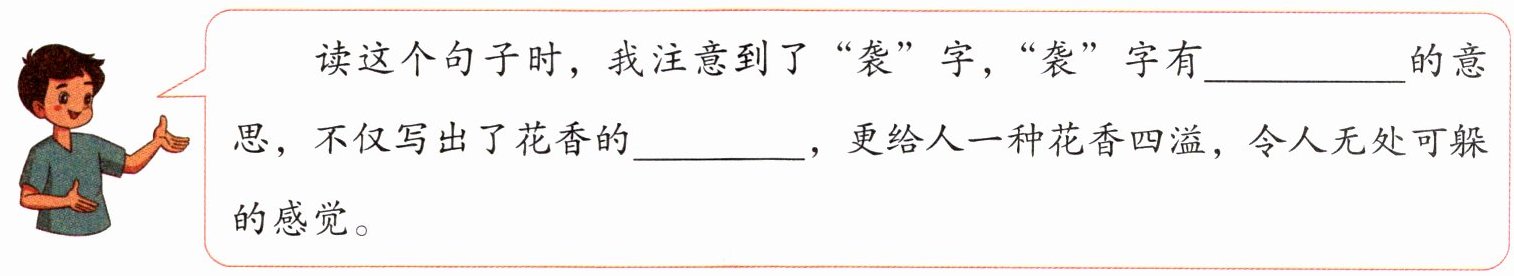 读这个句子时，我注意到了“袭”字，“袭”字有__________的意
思，不仅写出了花香的________，更给人一种花香四溢，令人无处可躲
的感觉。